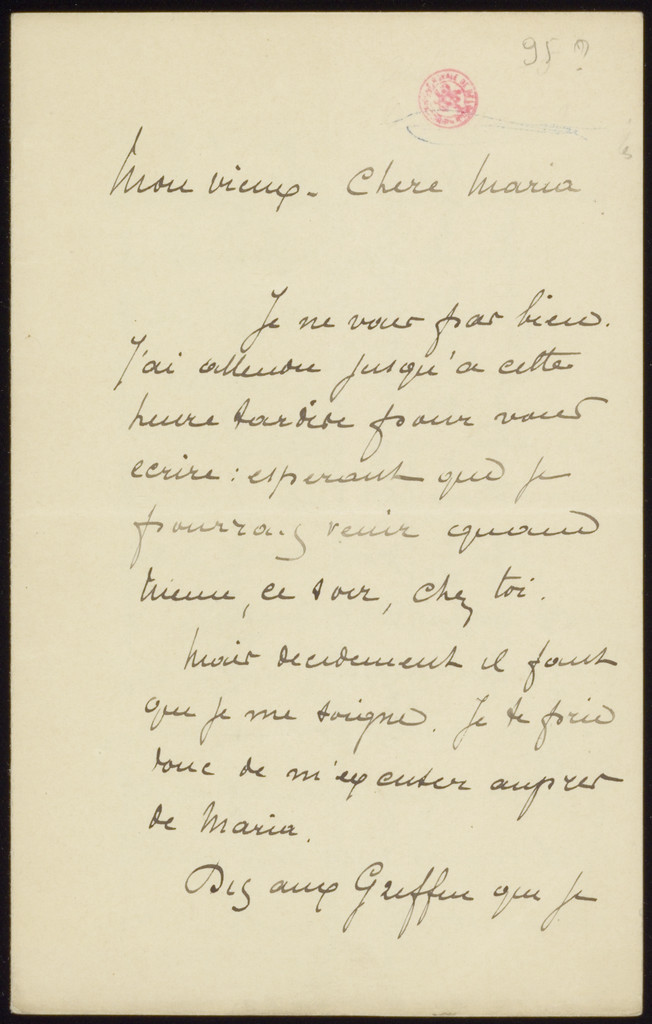 95 ?
Mon vieux - Chere Maria
Je ne vais pas bien.
J'ai attendu jusqu'a cette
heure tardive pour vous
ecrire : esperant que je
pourrais venir quand
meme, ce soir, chez toi.
Mais decidement il faut
que je me soigne. Je te prie
donc de m'excuser aupres
de Maria.
Dis aux Griffin que je